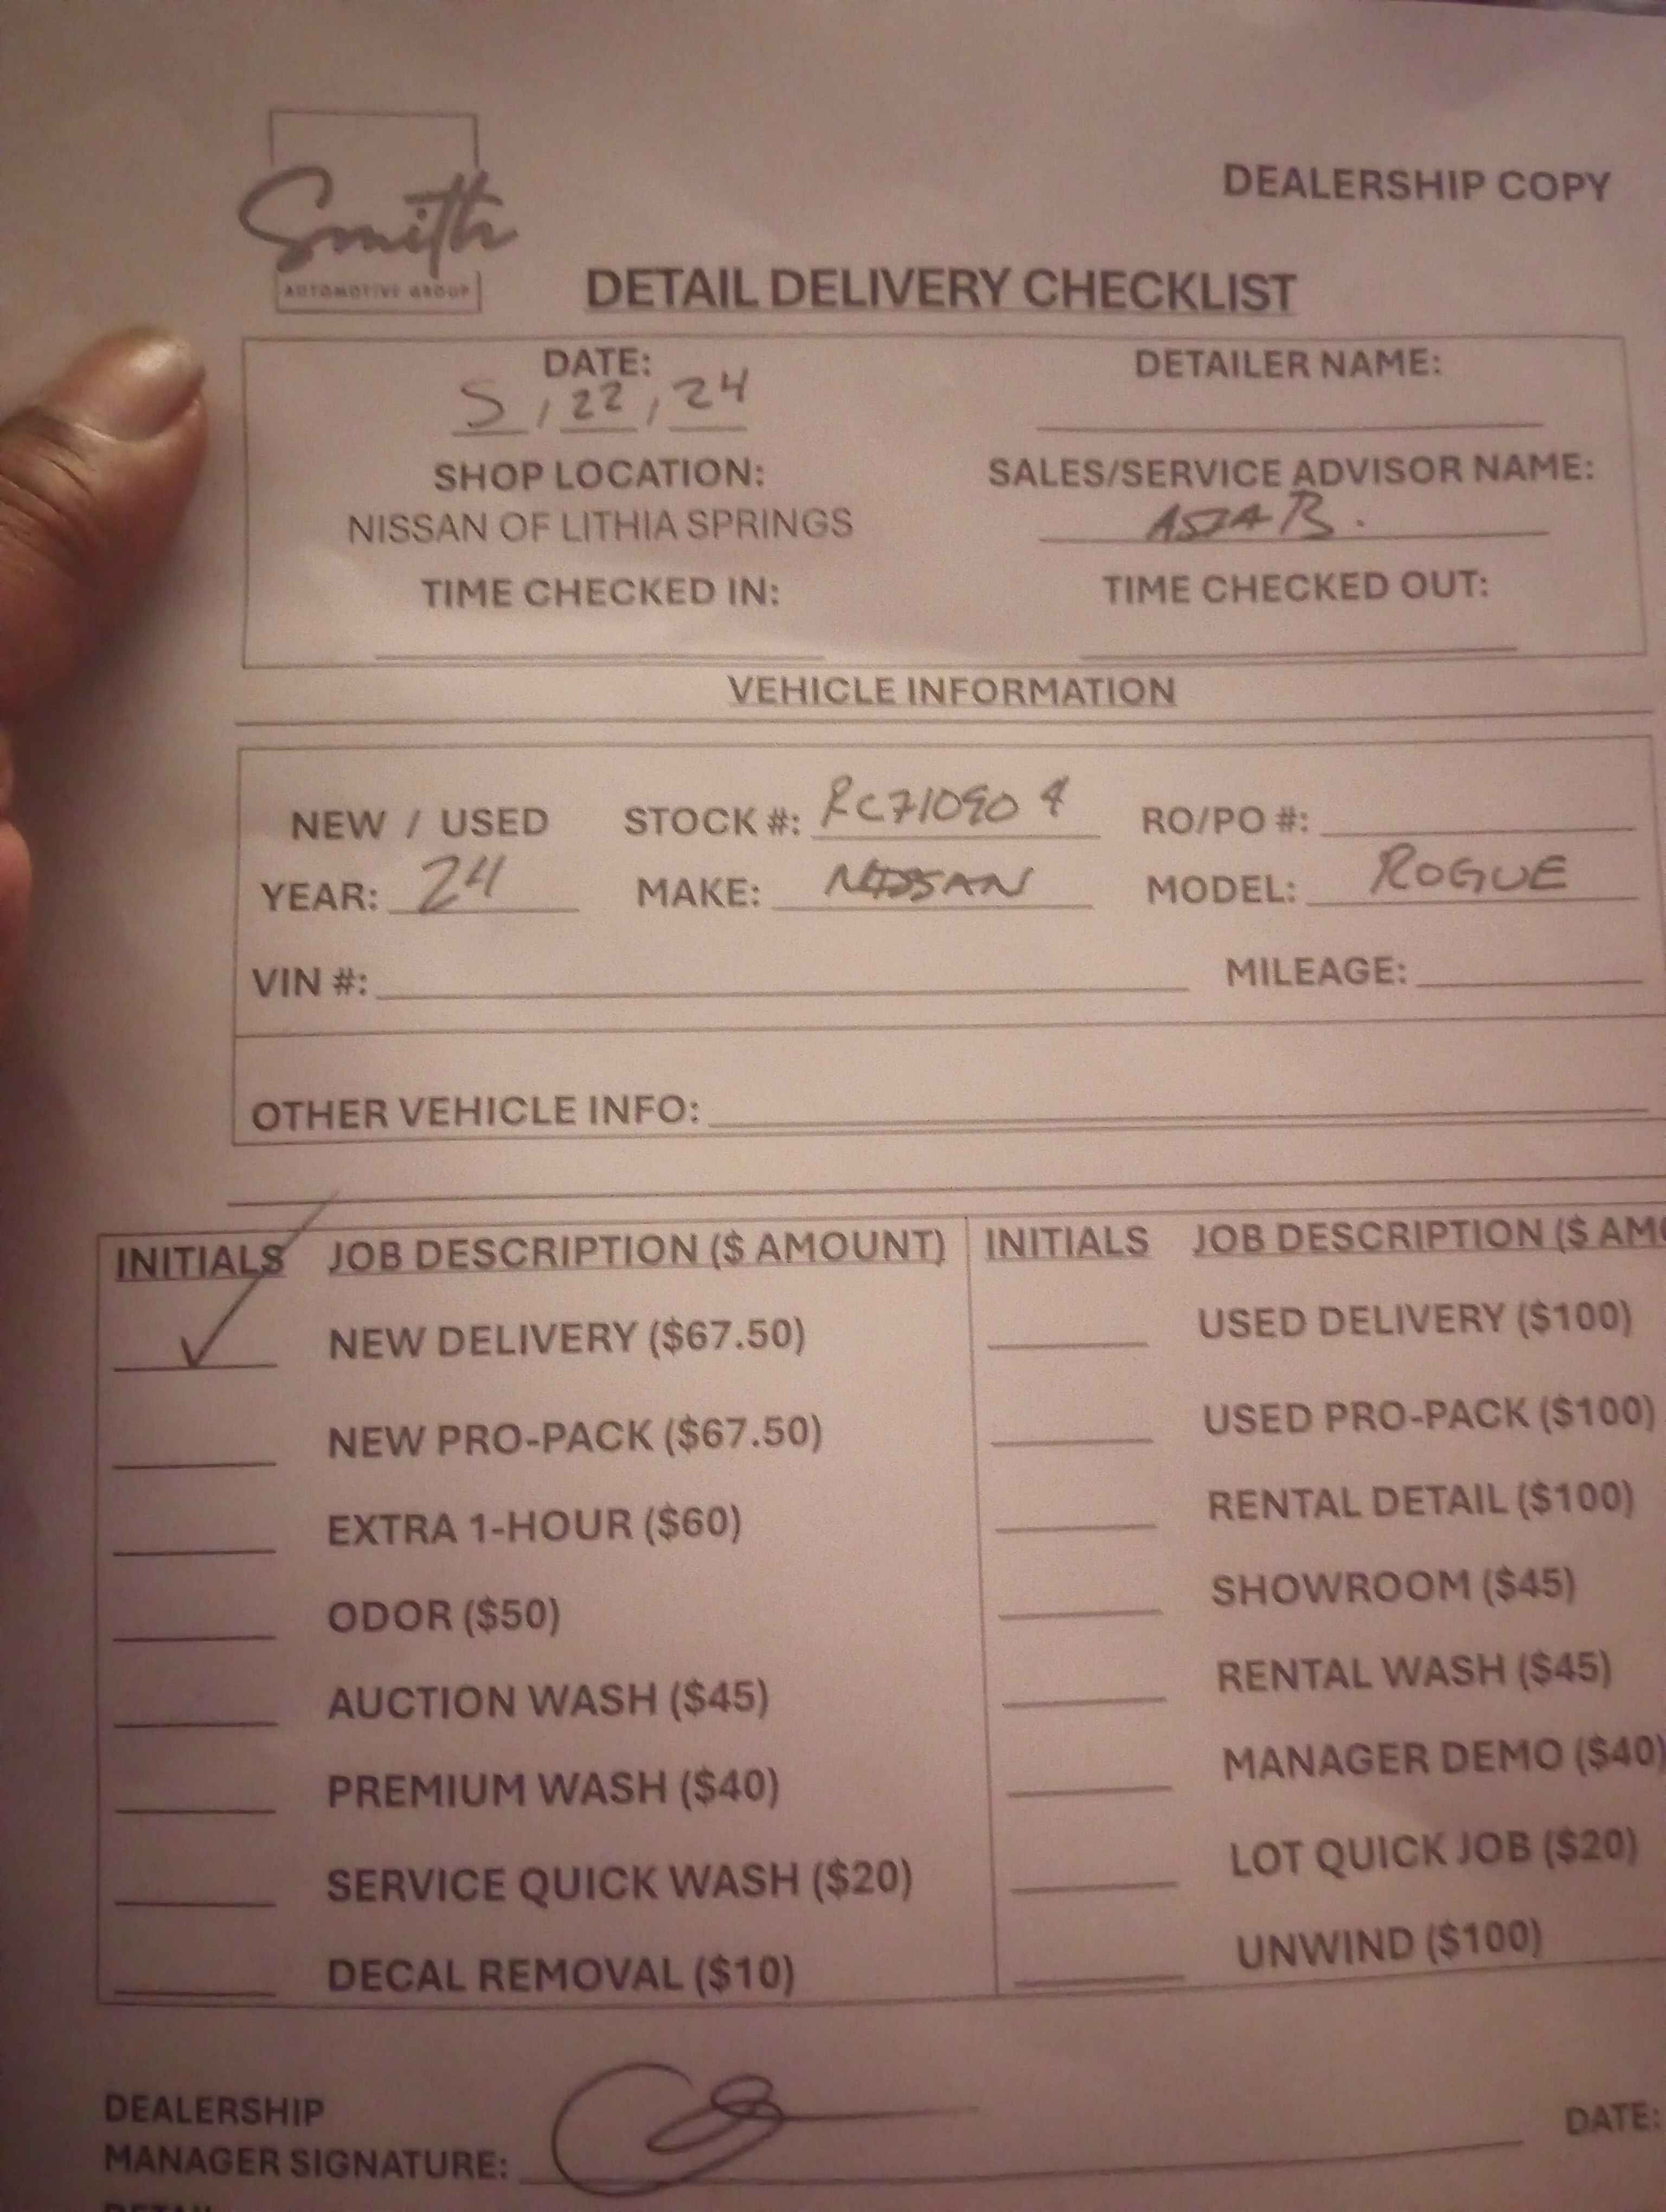 Smith
AUTOMOTIVE GROUP
DEALERSHIP COPY
DETAIL DELIVERY CHECKLIST
DATE: DETAILER NAME:
5/22/24
SHOP LOCATION: SALES/SERVICE ADVISOR NAME:
NISSAN OF LITHIA SPRINGS ASIA B.
TIME CHECKED IN: TIME CHECKED OUT:
VEHICLE INFORMATION
NEW / USED STOCK #: RC710904 RO/PO #:
YEAR: 24 MAKE: NISSAN MODEL: ROGUE
VIN #: MILEAGE:
OTHER VEHICLE INFO:
INITIALS JOB DESCRIPTION ($ AMOUNT) INITIALS JOB DESCRIPTION ($ AMO
✓ NEW DELIVERY ($67.50) USED DELIVERY ($100)
NEW PRO-PACK ($67.50) USED PRO-PACK ($100)
EXTRA 1-HOUR ($60) RENTAL DETAIL ($100)
ODOR ($50) SHOWROOM ($45)
AUCTION WASH ($45) RENTAL WASH ($45)
PREMIUM WASH ($40) MANAGER DEMO ($40)
SERVICE QUICK WASH ($20) LOT QUICK JOB ($20)
DECAL REMOVAL ($10) UNWIND ($100)
DEALERSHIP
MANAGER SIGNATURE: DATE: